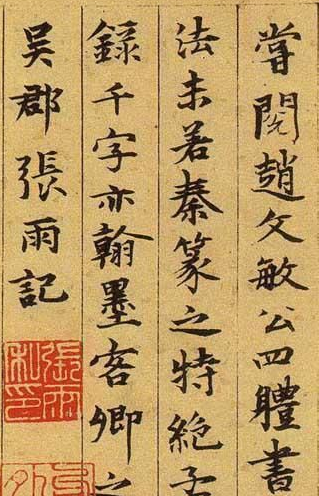 嘗閱趙文敏公四體書
法未若秦篆之特絶子
錄千字亦翰墨客卿之
吳郡張雨記
張雨私印